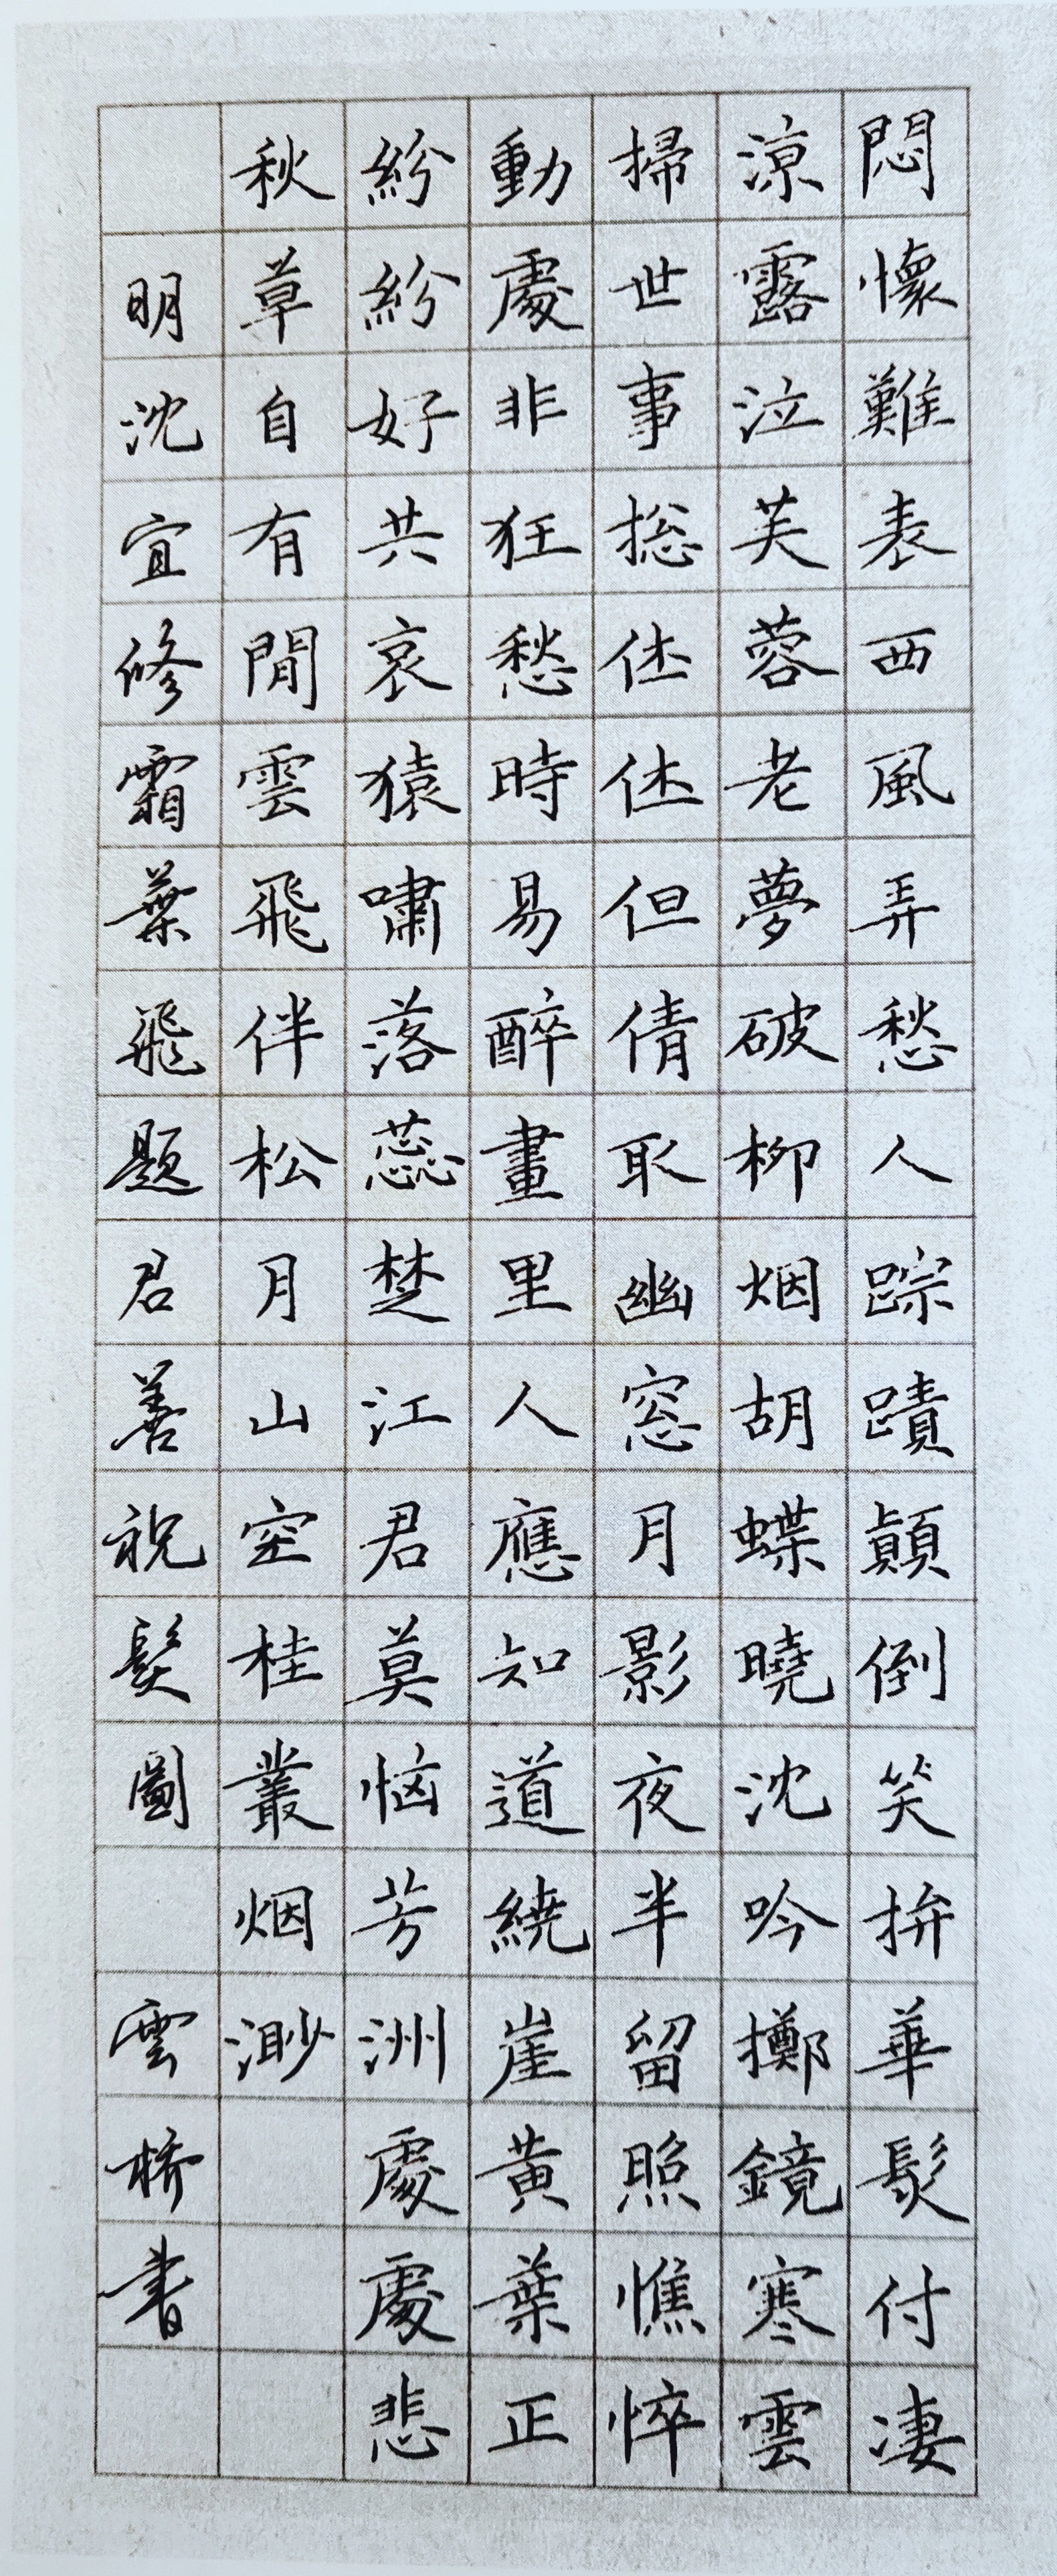 悶懷難表西風弄愁人踪蹟顛倒笑拚華髮付淒
涼露泣芙蓉老夢破柳烟胡蝶曉沈吟擲鏡寒雲
掃世事捴㑣㑣但倩取幽窓月影夜半留照憔悴
動處非狂愁時易醉畫里人應知道繞崖黃葉正
紛紛好共哀猿嘯落蕊楚江君莫惱芳洲處處悲
秋草自有閒雲飛伴松月山空桂叢烟渺
明沈宜修霜葉飛題君善祝髮圖
雲橋書